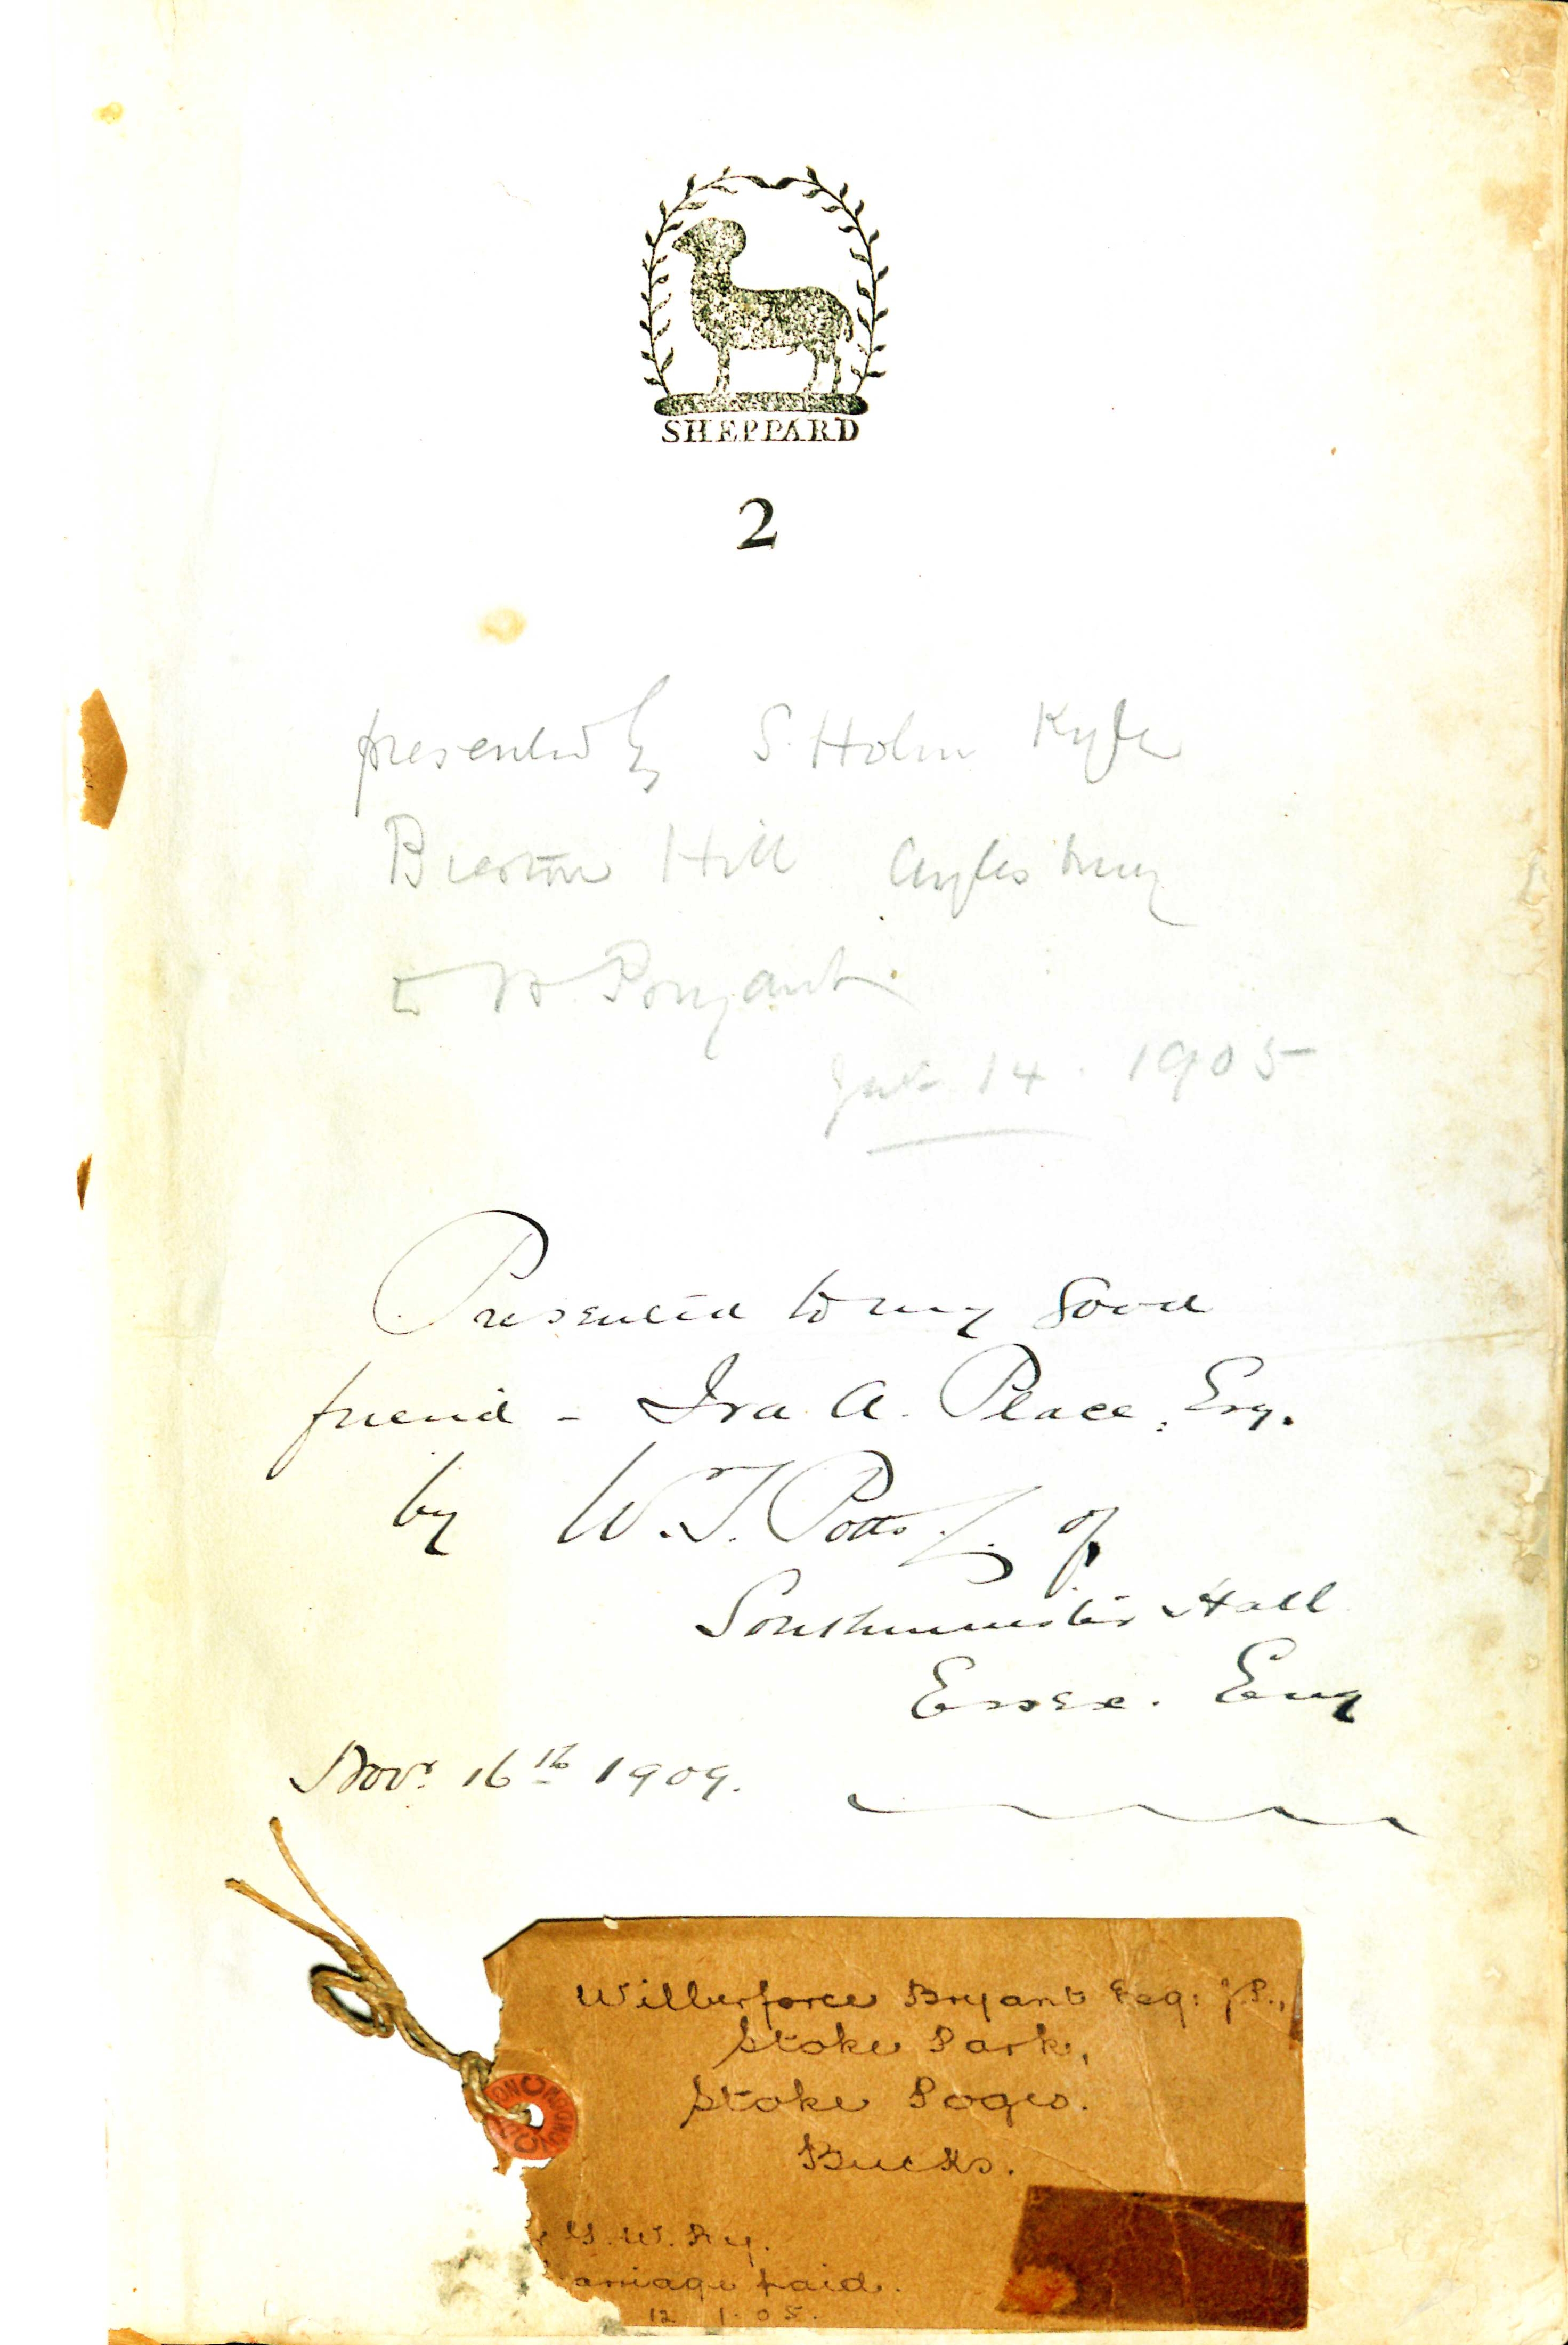 SHEPPARD
2
presented by S. Holm
Bierton Hill Aylesbury
to W. Bryant
14. 1905
Presented to my good
friend - Ira A. Place, Esq.
by W. T. Potts of
Southminster Hall
Essex. Eng
Novr. 16th 1909.
Wilberforce Bryant Esq: J.P.,
Stoke Park,
Stoke Poges.
Bucks.
G. W. Ry.
arriage paid.
12 1. 05.